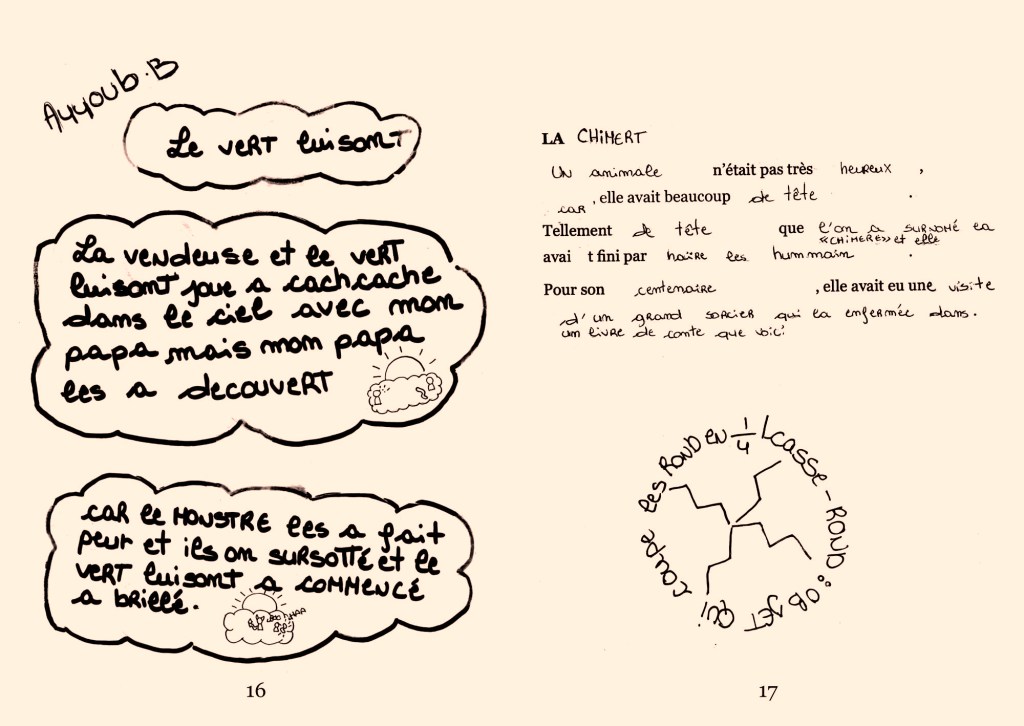 Ayyoub.B
Le VERT luisant
La vendeuse et le VERT
luisant joue a cachcache
dans le ciel avec mon
papa mais mon papa
les a decouvert
CAR le MONSTRE les a fait
peur et ils on SURSOTTÉ et le
VERT luisant a COMMENCÉ
a brillé.
16
LA CHIMERT
Un animale n'était pas très heureux ,
car , elle avait beaucoup de tête .
Tellement de tête que l'on a SURNOMÉ la
«CHIMERE» et elle
avai t fini par haïre les hummain .
Pour son centenaire , elle avait eu une visite
d'un grand sorcier qui la enfermée dans.
un livre de conte que voici
Casse-ROND : OBJET QUI coupe les ROND EN 1/4
17